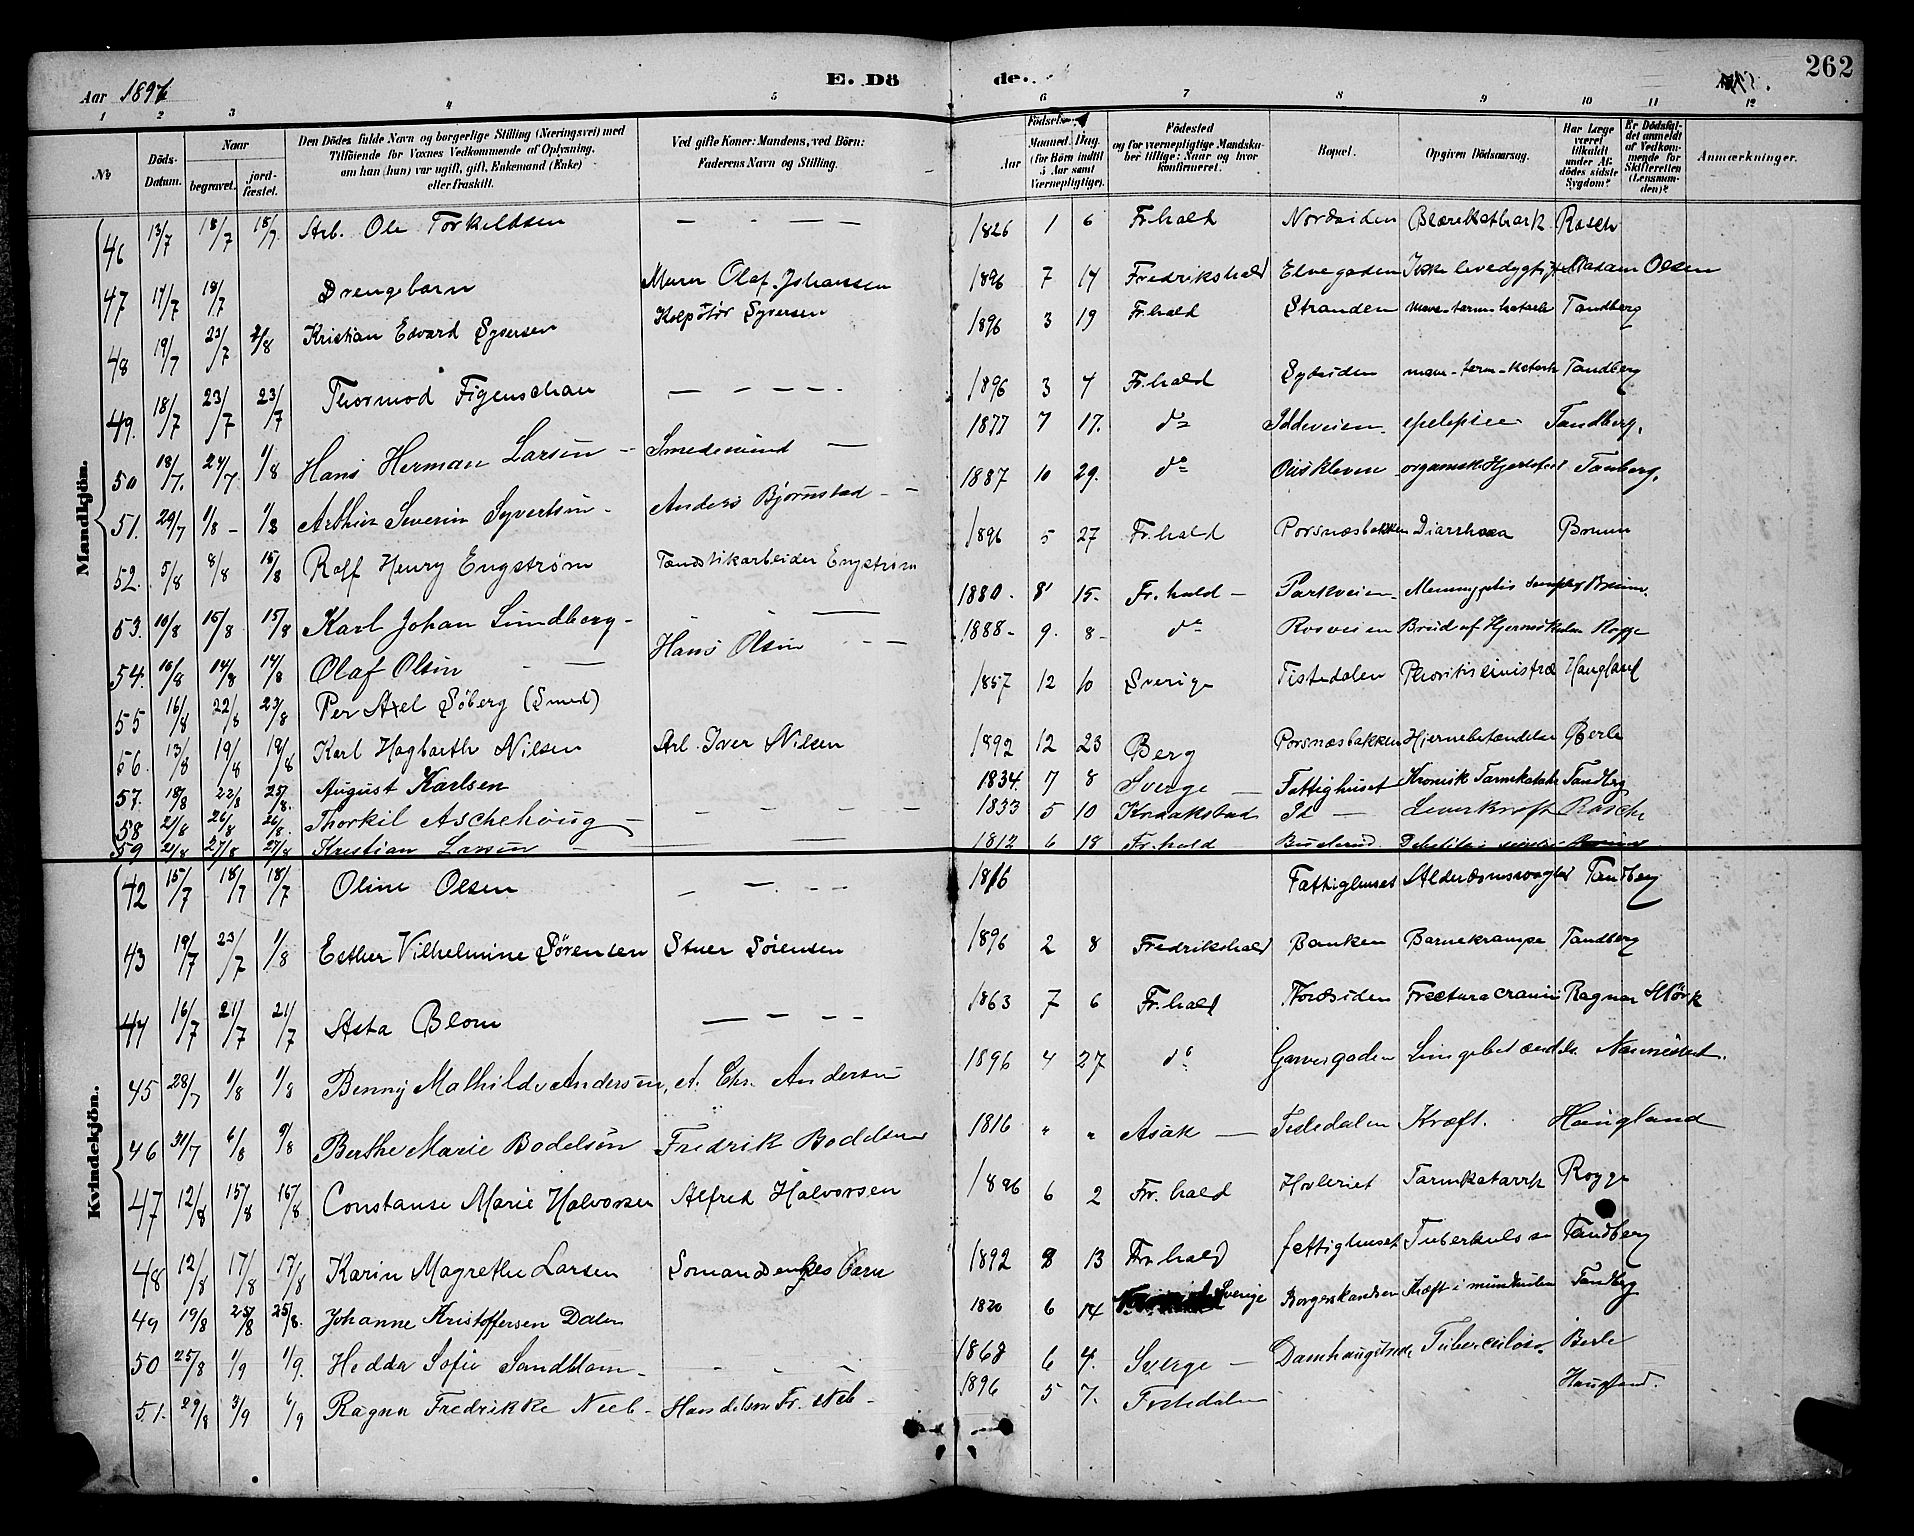 Aar 1896 E. Dö de. 262
1 2 3 4 5 6 7 8 9 10 11 12
No
Döds-Datum.
Naar
begravet.
jordfæstet.
Den Dödes fulde Navn og borgerlige Stilling (Næringsvei) med Tilföiende for Voxnes Vedkommende af Oplysning, om han (hun) var ugift, gift, Enkemand (Enke) eller fraskilt.
Ved gifte Koner: Mandens, ved Börn: Faderens Navn og Stilling.
Födsels-
Aar
Maaned. Dag.
(for Börn indtil 5 Aar samt Værnepligtige).
Födested og for værnepligtige Mandskaber tillige: Naar og hvor konfirmeret.
Bopæl.
Opgiven Dödsaarsag.
Har Læge været tilkaldt under Afdödes sidste Sygdom?
Er Dödsfaldet anmeldt af Vedkommende for Skifteretten (Lensmanden)?
Anmærkninger.
Mandkjön.
46 13/7 18/7 18/7. Arb. Ole Torkildsen — - — — 1826 1 6 Fr.hald Nordsiden Blærekatharh Rasch
47 17/7 18/7 Drengebarn Murer Olaf Johansen 1896 7 17 Fredrikshald Elvegaden Ikke levedygtig Madam Olsen
48 19/7 23/7 2/8 Kristian Edvard Syversen Syversen 1896 3 19 Fr.hald Stranden mave-tarm-katarh Tandberg
49. 18/7 23/7 23/7 Thormod Figenschau — — - - - 1896 3 4 Fr.hald Sydsiden mave-tarm-katarh Tandberg
50 18/7. 24/7 1/8 Hans Herman Larsen - Smedesvend — 1877 7 17. do Iddeveien epelepsie Tandberg.
51. 29/7 1/8 - 1/8 Arthur Severin Syvertsen - Anders Bjørnstad - - 1887 10 29. do organisk Hjertefeil Tanberg.
52. 5/8 8/8 15/8 Rolf Henry Engstrøm Tændstikarbeider Engstrøm 1896 5 27 Fr.hald Porsnæsbakken Diarrhoea Bruun
53. 10/8 15/8 15/8 Karl Johan Lundberg - - - — 1880. 8 15. Fr.hald - Parkveien Bruun.
54. 10/8 14/8 14/8 Olaf Olsen - — Hans Olsen - - 1888 - 9. 8 - do Rosveien Brud af Rogge
55 16/8 22/8 23/8 Per Axel Söberg (Smed) 1857 12 10 Sverige Tistedalen Haugland
56. 13/8 19/8 19/8 Karl Hagbarth Nilsen Arb. Iver Nilsen 1892 12 23 Berg Porsnæsbakken Hjernebetændelse
57. 18/8 22/8 25/8. August Karlsen 1834. 7 8 Sverge — Fattighuset Kronisk Tarmkatarh Tandberg
58 21/8 26/8 26/8. Thorkil Aschehoug — - - - - 1833 5 10 Kraakstad Id — Leverkræft Rasch
59 21/8 27/8 27/8 Kristian Larsen - — 1812 6 18 Fr.hald
Kvindekjön.
42 15/7 18/7 18/7 Oline Olsen - — - - 1816 Fattighuset Tandberg
43 19/7 23/7 1/8 Esther Vilhelmine Sörensen Stuer Sörensen 1896 2 8 Fredrikshald Banken Barnekrampe Tandberg
44 16/7 21/7 21/7 Asta Blom — - - - 1863 7 6 Fr.hald Nordsiden Fractura cranii Ragnar Störk
45 28/7 1/8 1/8 Benny Mathilde Andersen, A. Chr. Andersen 1896 4 27 do Garvergaden Lungebetændelse
46 31/7 6/8 9/8 Berthe Marie Bodelsen Fredrik Bodelsen 1816 " " Asak — Tistedalen Kræft. Haugland
47 12/8 15/8 16/8 Constanse Marie Halvorsen Alfred Halvorsen 1896 6 2 Fr.hald Tarmkatarrh Rogge
48 12/8 17/8 17/8 Karin Magrethe Larsen Barn 1892 8 13 Fr.hald fattighuset Tuberkulose Tandberg
49 19/8 25/8 25/8. Johanne Kristoffersen Dalen 1820 6 14 Sverige Borgerskandsen Kræft i mundhulen Tandberg
50 25/8 1/9 1/9. Hedda Sofie Sandblom - - - - 1868 6 4. Sverge — Tuberculose
51. 29/8 3/9 6/9 Ragna Fredrikke Neeb - Handelsm Fr. Neb - 1896 5 7. Tistedalen Haugland.